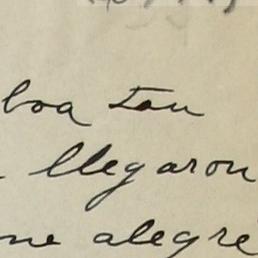 boa tan
llegaron
me alegre